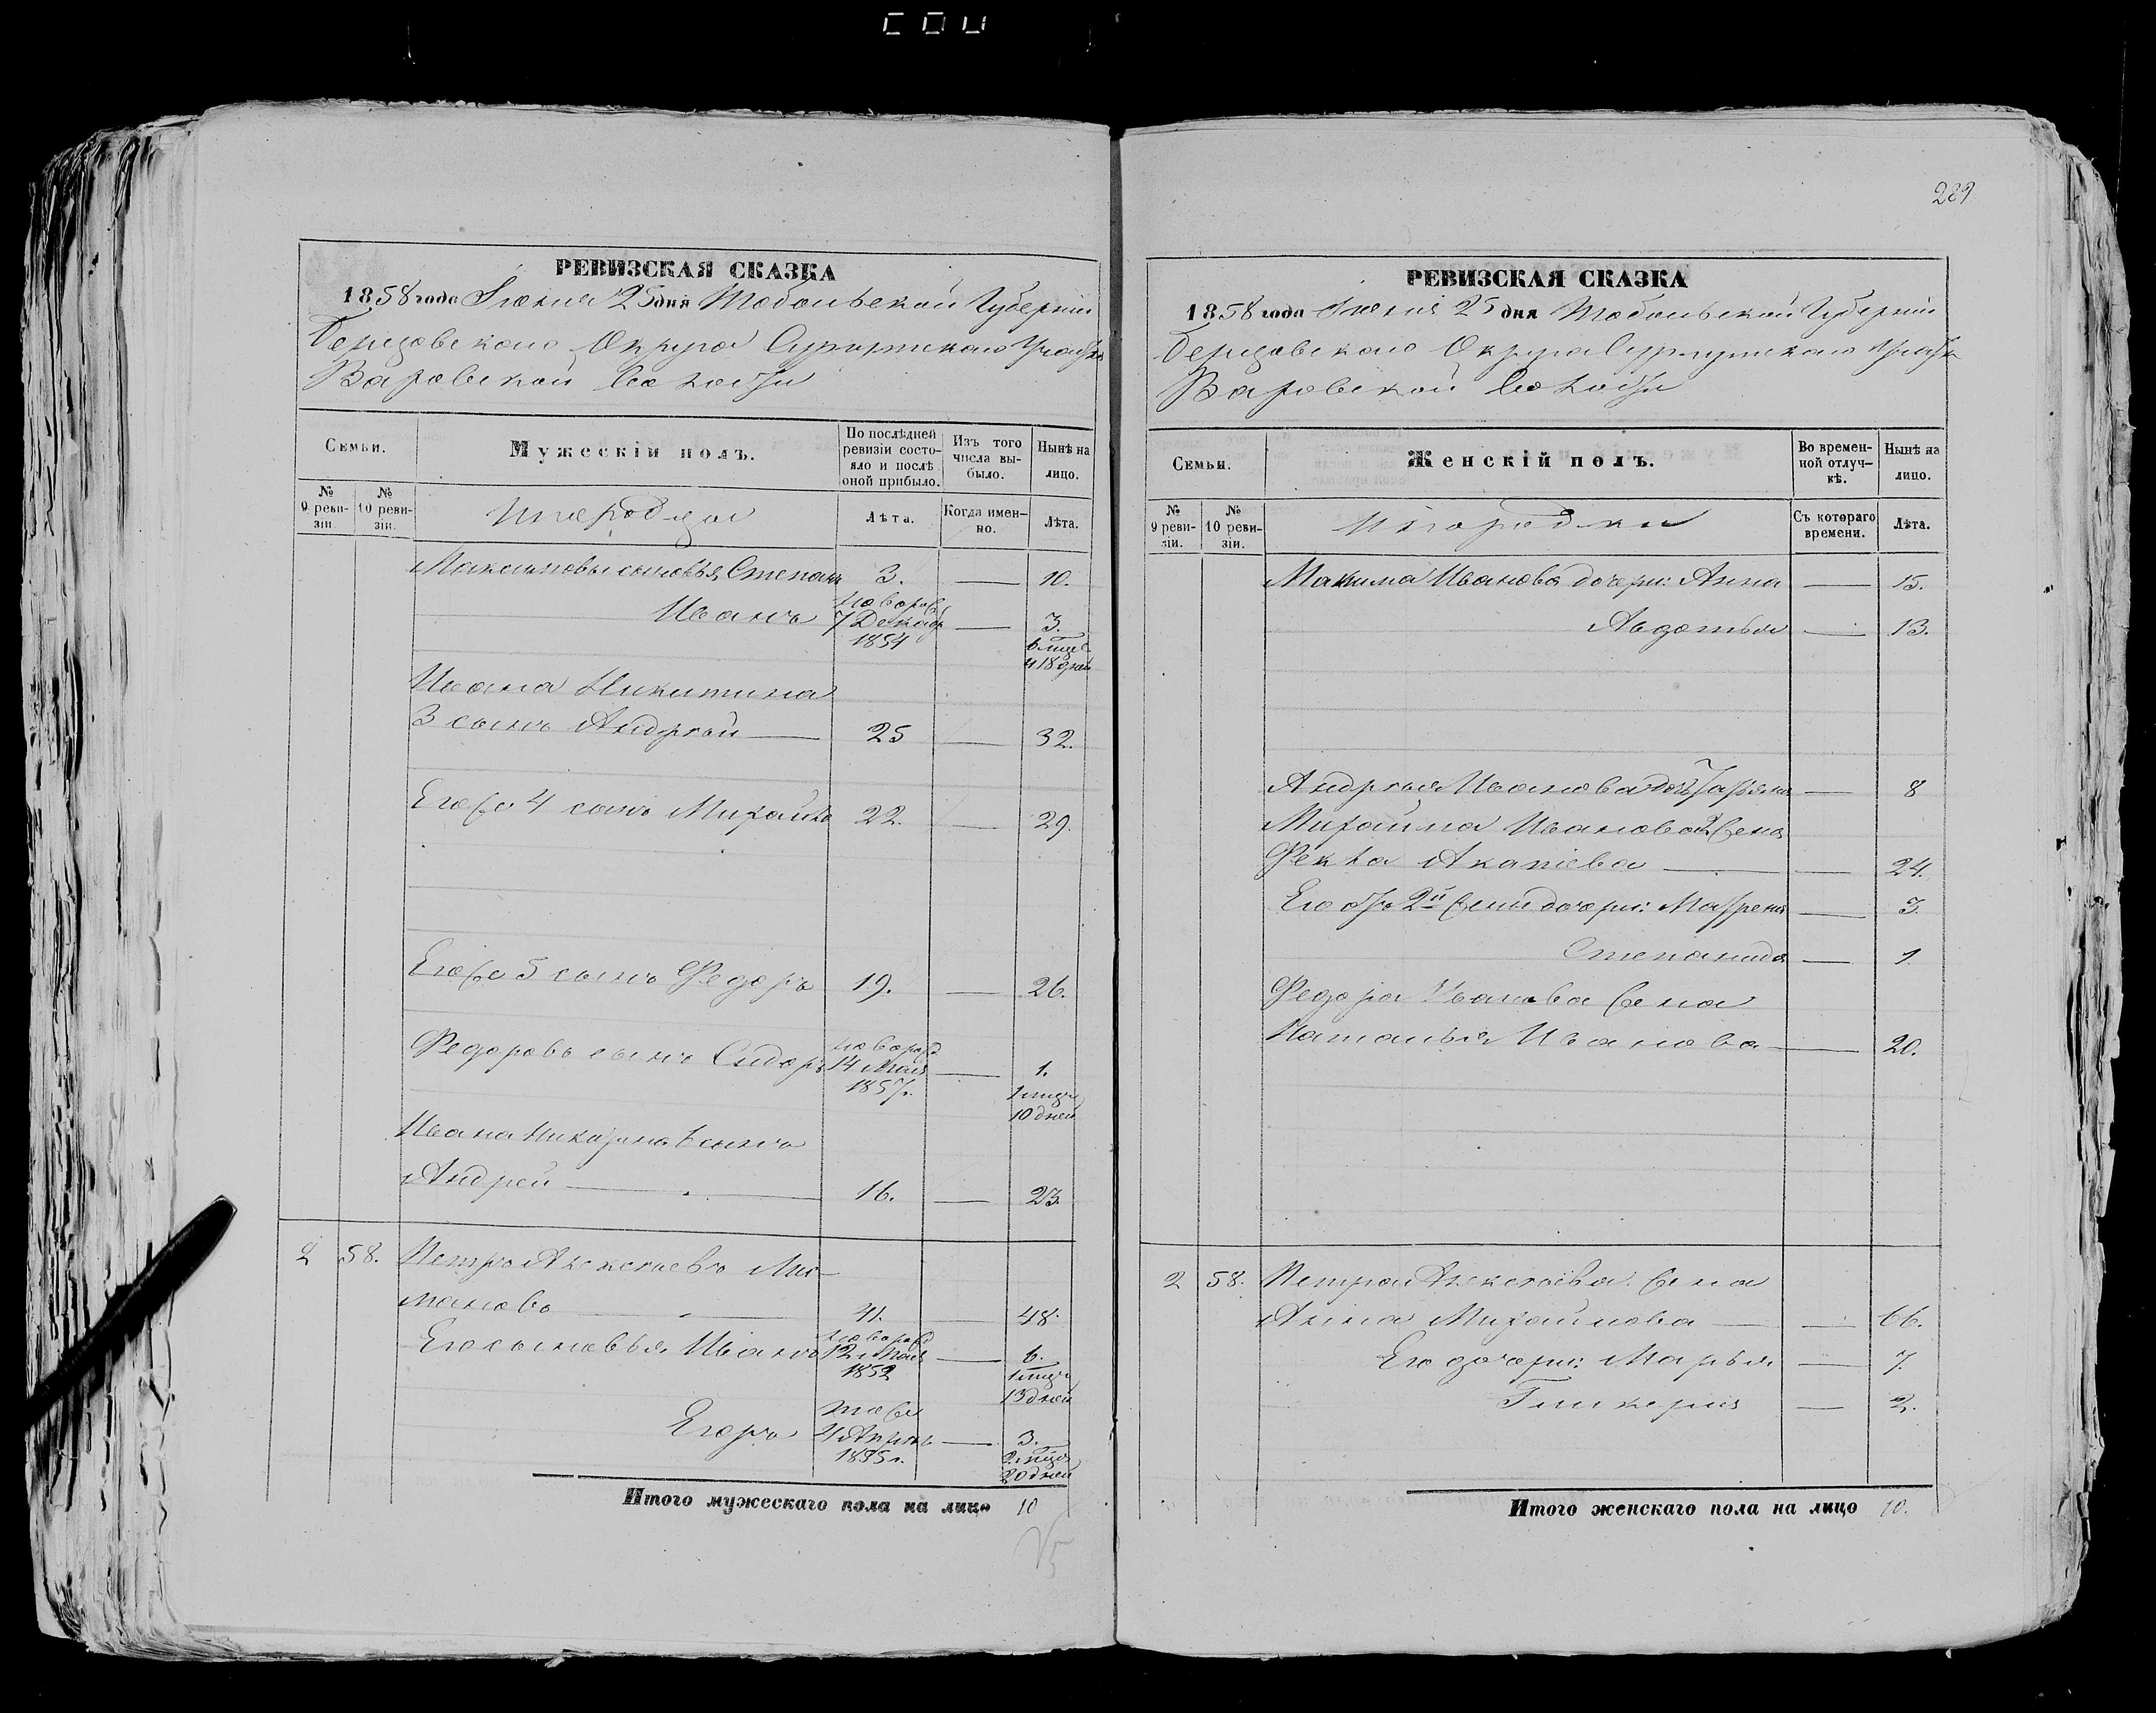 289
РЕВИЗСКАЯ СКАЗКА
1858 года Іюня 25 дня Тобольской Губерніи
Березовскаго Округа Сургутскаго
Мужескій полъ.
Семьи.
№ 9 реви-зіи.
№ 10 реви-зіи.
По послѣдней ревизіи состо-яло и послѣ оной прибыло.
Изъ того числа вы-было.
Нынѣ на лицо.
Лѣта.
Когда имен-но.
Лѣта.
Максимовы сыновья, Степанъ 3. — 10.
Иванъ 7 Декабр 1854 — 3. 6 и 18 дней
Ивана Никитина
3 сынъ Андрей — 25 — 32.
Его же 4 сынъ Михайло 22. — 29.
Его же 5 сынъ Федоръ 19. — 26.
Федоровъ сынъ Сидоръ 14 Мая 1857 г. — 1. 10 дней
Ивана Никитина 6 сынъ
Андрей — 16. — 23.
2 58. Петръ Алексѣевъ
41. — 48.
Его сыновья Иванъ 12 Мая 1852 — 6. 13 дней
Егоръ тоже 4 Апрѣл 1855 г. — 3. 2 20 дней
Итого мужескаго пола на лицо 10
РЕВИЗСКАЯ СКАЗКА
1858 года Іюня 25 дня Тобольской Губерніи
Березовскаго Округа Сургутскаго
Семьи.
Женскій полъ.
Во времен-ной отлуч-кѣ.
Нынѣ на лицо.
№ 9 реви-зіи.
№ 10 реви-зіи.
Инородки
Съ котораго времени.
Лѣта.
Максима Иванова дочери: Анна — 15.
Авдотья — 13.
Андрея Иванова дочь — 8
Михайла Иванова 2 жена
Фекла — — 24.
Его отъ 2й жены дочери: Матрена — 3.
Степанида — 1.
Федора Иванова жена
Наталья Иванова — 20.
2 58. Петра Алексѣева жена
Анна Михайлова — — 66.
Его дочери: Марья — 7.
Гликерия — 2.
Итого женскаго пола на лицо 10.